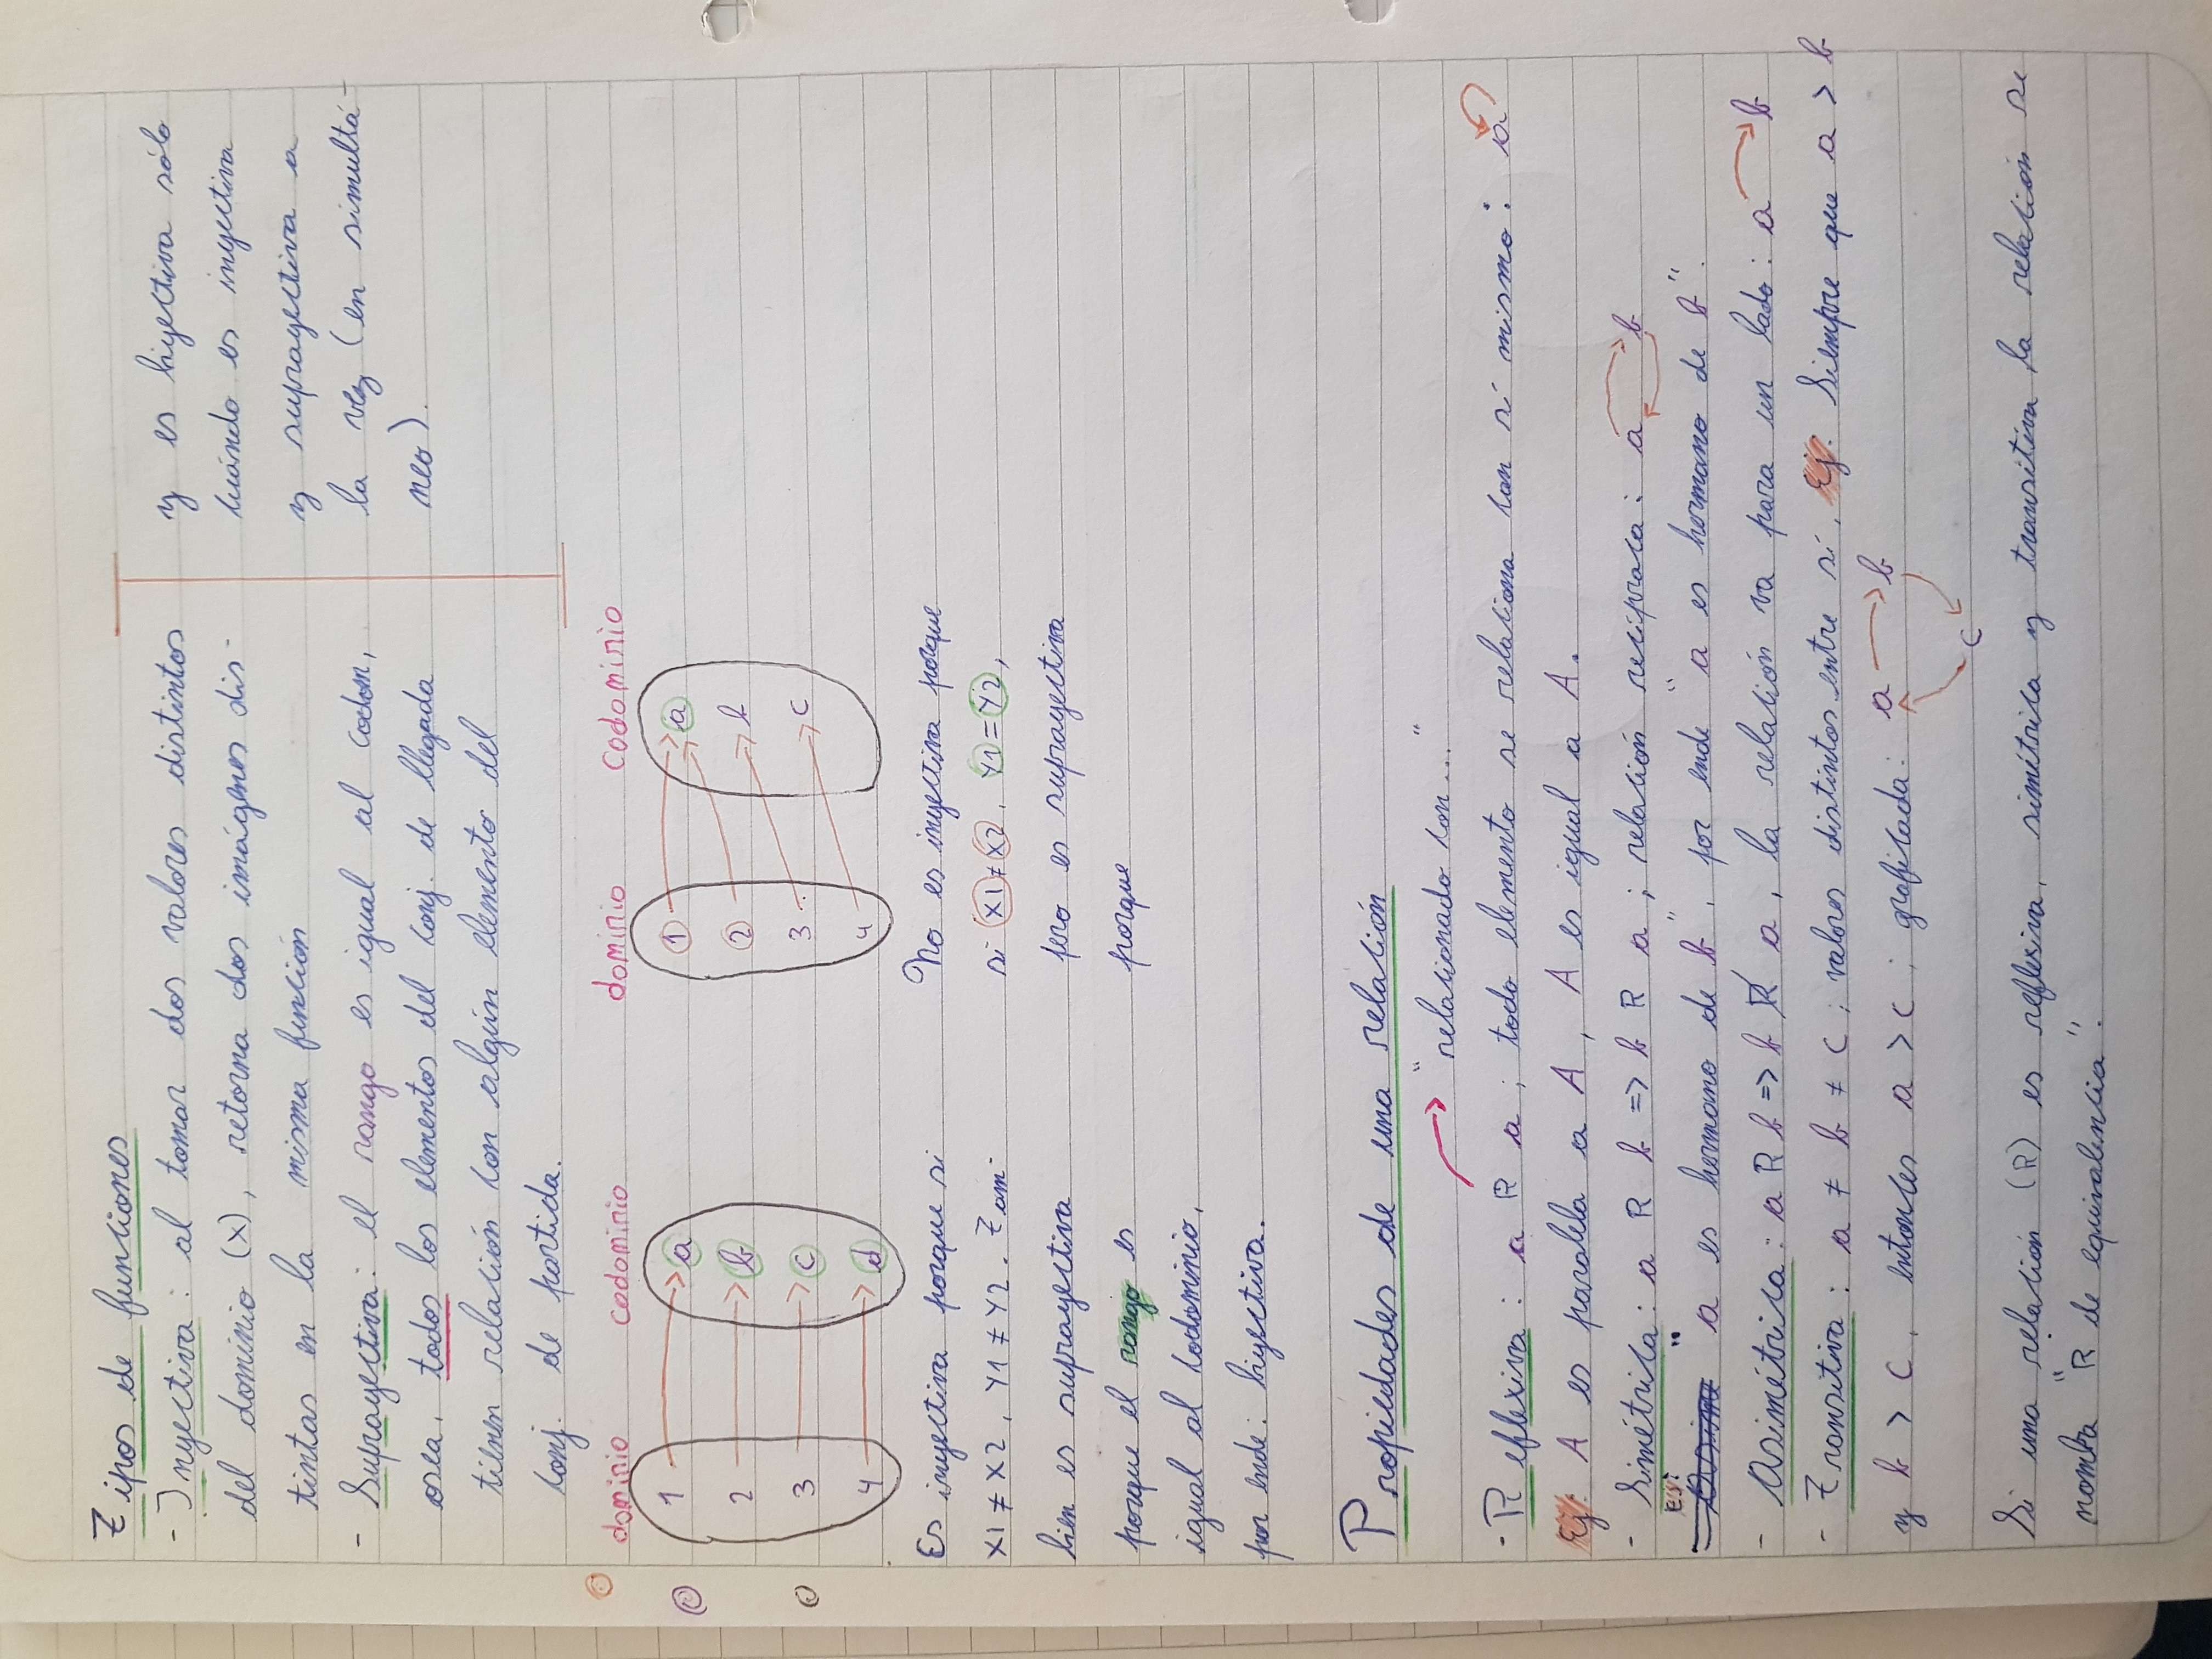 Tipos de funciones
- Inyectiva: al tomar dos valores distintos
del dominio (x), retorna dos imágenes dis-
tintas en la misma función
- Suprayectiva: el rango es igual al codom,
osea, todos los elementos del conj. de llegada
tienen relación con algún elemento del
conj. de partida.
y es biyectiva sólo
cuándo es inyectiva
y suprayectiva a
la vez (en simultá-
neo).
dominio codominio
1 a
2 b
3 c
4 d
dominio codominio
1 a
2 b
3 c
4
Es inyectiva porque si
X1 ≠ X2, Y1 ≠ Y2. Tam-
bien es suprayectiva
porque el rango es
igual al codominio,
por ende: biyectiva.
No es inyectiva porque
si X1 ≠ X2, Y1 = Y2,
pero es suprayectiva
porque
Propiedades de una relación
"relacionado con..."
- Reflexiva: a R a; todo elemento se relaciona con sí mismo: a
Ej: A es paralela a A, A es igual a A.
- Simétrica: a R b => b R a; relación recíproca: a b
ej: "a es hermano de b", por ende "a es hermano de b".
- Asimétrica: a R b => b R̸ a, la relación va para un lado: a b
- Transitiva: a ≠ b ≠ c; valores distintos entre sí. Ej: Siempre que a > b
y b > c, entonces a > c; graficada: a b
c
Si una relación (R) es reflexiva, simétrica y transitiva la relación se
nombra "R de equivalencia".